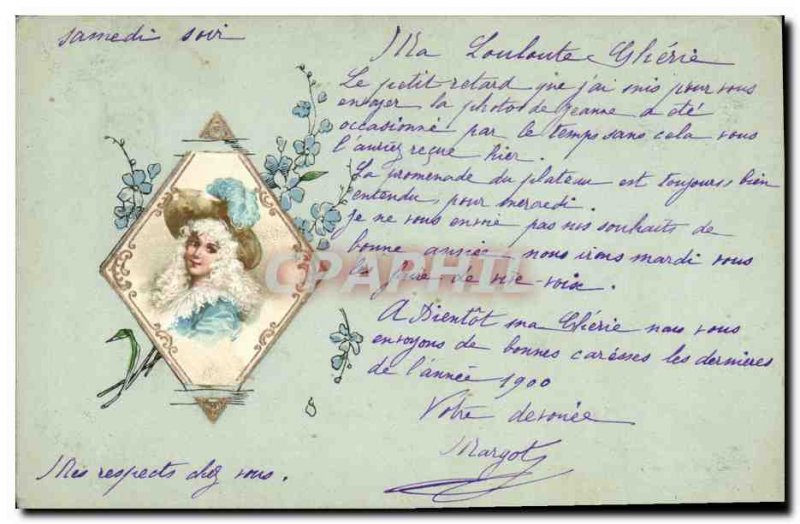 samedi soir
Ma Louloute Chérie
Le petit retard que j'ai mis pour vous
envoyer la photo de Jeanne a été
occasionné par le temps sans cela vous
l'auriez reçue hier.
La promenade du plateau est toujours bien
entendu, pour mercredi.
Je ne vous envoie pas nos souhaits de
bonne année, nous irons mardi vous
les faire de vive-voix.
A Bientôt ma Chérie nous vous
envoyons de bonnes caresses les dernières
de l'année 1900
Votre dévouée
Margot
Mes respects chez vous.
CPAPHIL